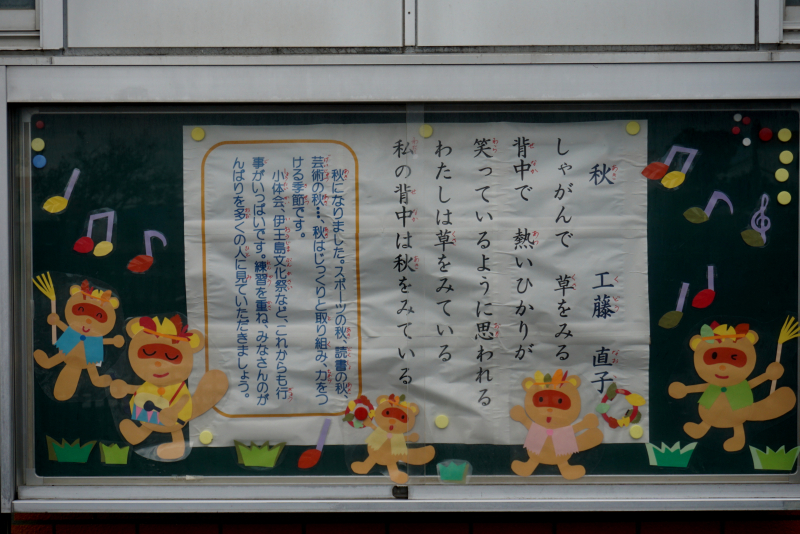 秋
工藤 直子
しゃがんで 草をみる
背中で 熱いひかりが
笑っているように思われる
わたしは草をみている
私の背中は秋をみている
秋になりました。スポーツの秋、読書の秋、
芸術の秋…、秋はじっくりと取り組み、力をつ
ける季節です。
小体会、伊王島文化祭など、これからも行
事がいっぱいです。練習を重ね、みなさんのが
んばりを多くの人に見ていただきましょう。